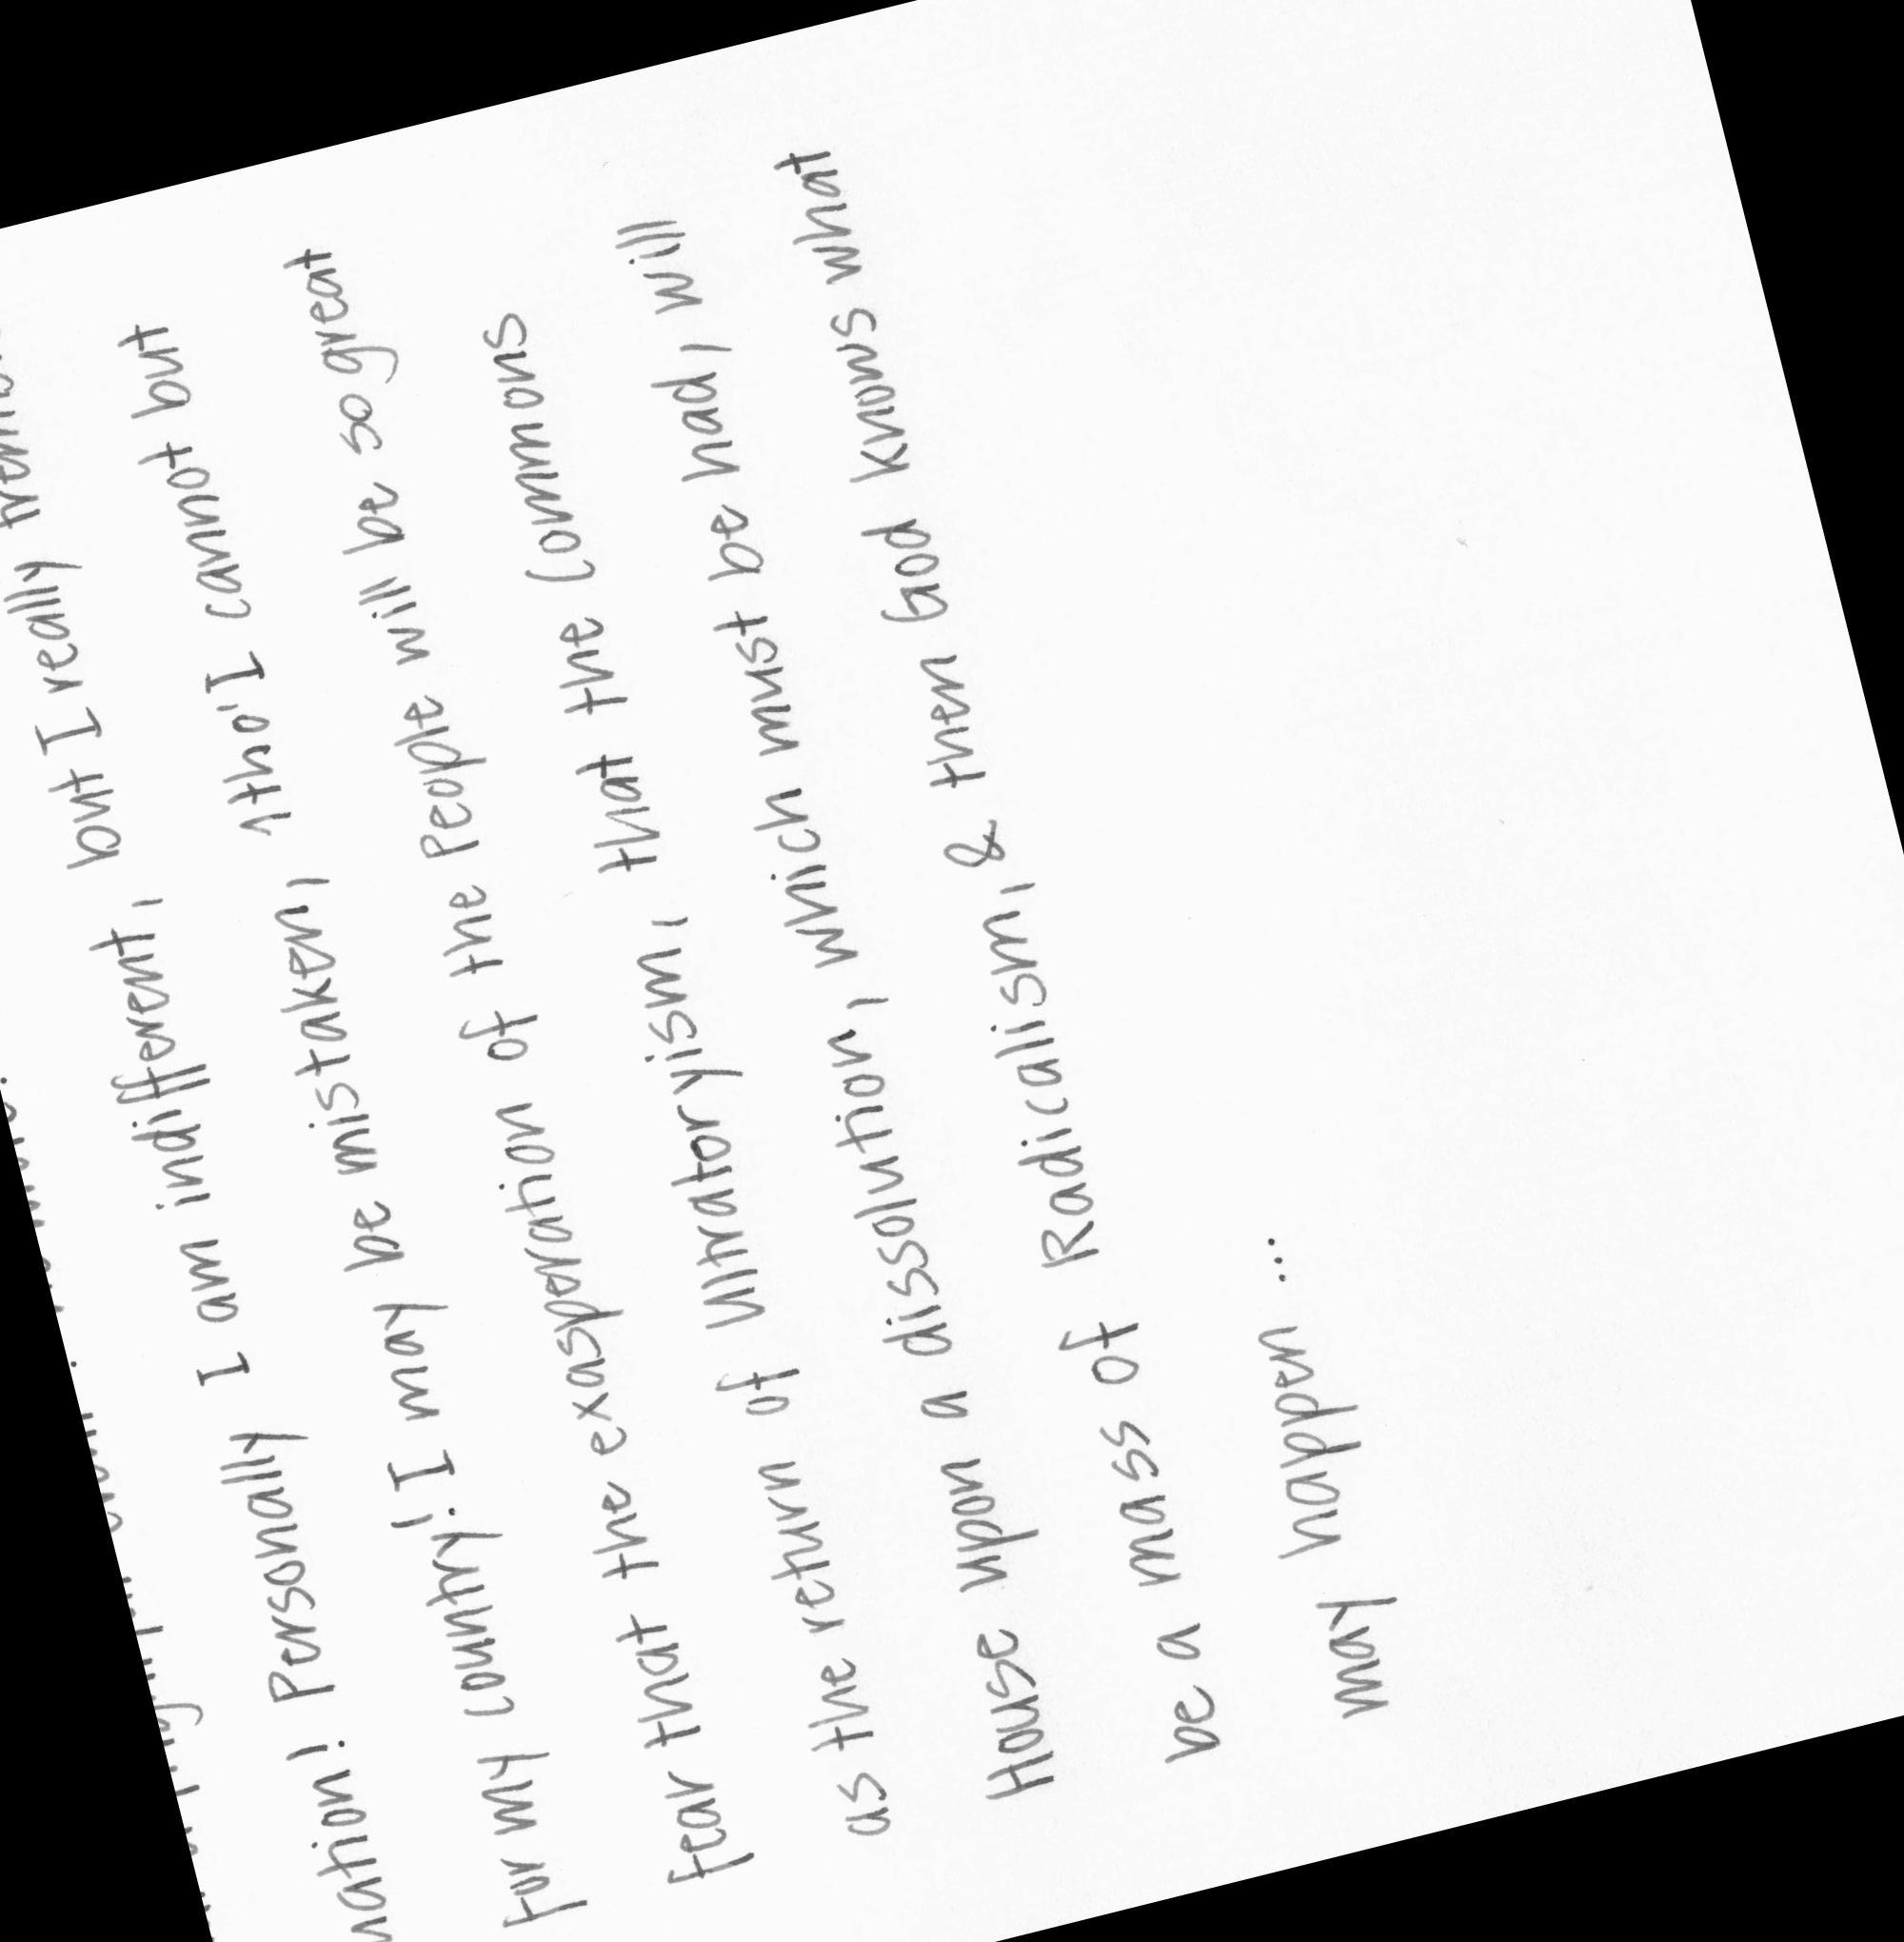 Personally I am indifferent, but I really
for my country; I may be mistaken, 'tho' I cannot but
fear that the exasperation of the People will be so great
as the return of Ultratoryism, that the Commons
House upon a dissolution, which must be had, will
be a mass of Radicalism, & then God knows what
may happen ...